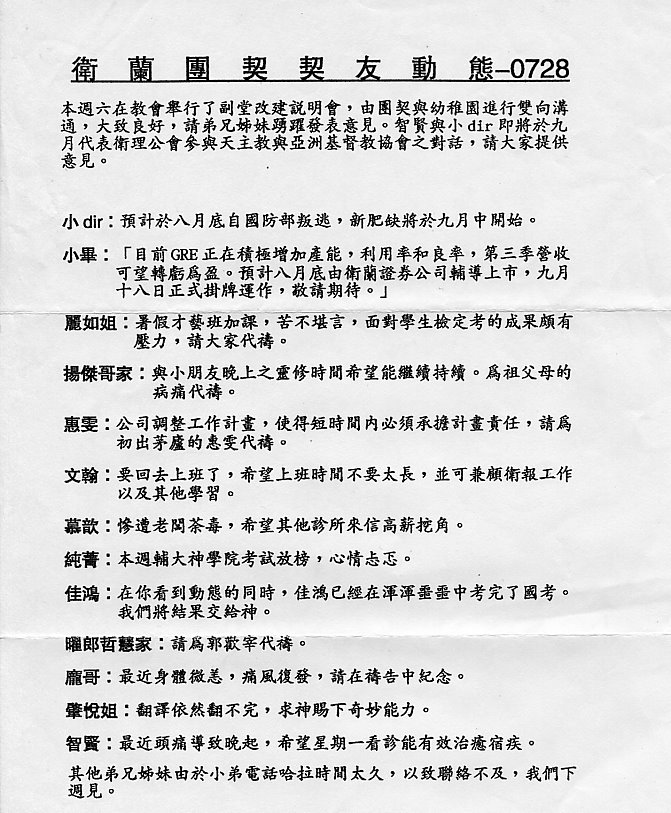 衛蘭團契契友動態–0728
本週六在教會舉行了副堂改建説明會，由團契與幼稚園進行雙向溝
通，大致良好，請弟兄姊妹踴躍發表意見。智賢與小dir即將於九
月代表衛理公會參與天主教與亞洲基督教協會之對話，請大家提供
意見。
小dir：預計於八月底自國防部叛逃，新肥缺將於九月中開始。
小畢：「目前GRE正在積極增加產能，利用率和良率，第三季營收
可望轉虧爲盈。預計八月底由衛蘭證券公司輔導上市，九月
十八日正式掛牌運作，敬請期待。」
麗如姐：暑假才藝班加課，苦不堪言，面對學生檢定考的成果頗有
壓力，請大家代禱。
揚傑哥家：與小朋友晚上之靈修時間希望能繼續持續。爲祖父母的
病痛代禱。
惠雯：公司調整工作計畫，使得短時間內必須承擔計畫責任，請爲
初出茅廬的惠雯代禱。
文翰：要回去上班了，希望上班時間不要太長，並可兼顧衛報工作
以及其他學習。
慕歆：慘遭老闆荼毒，希望其他診所來信高薪挖角。
純菁：本週輔大神學院考試放榜，心情忐忑。
佳鴻：在你看到動態的同時，佳鴻已經在渾渾噩噩中考完了國考。
我們將結果交給神。
曜郎哲慧家：請爲郭歡宰代禱。
龐哥：最近身體微恙，痛風復發，請在禱告中紀念。
肇悅姐：翻譯依然翻不完，求神賜下奇妙能力。
智賢：最近頭痛導致晚起，希望星期一看診能有效治癒宿疾。
其他弟兄姊妹由於小弟電話哈拉時間太久，以致聯絡不及，我們下
週見。